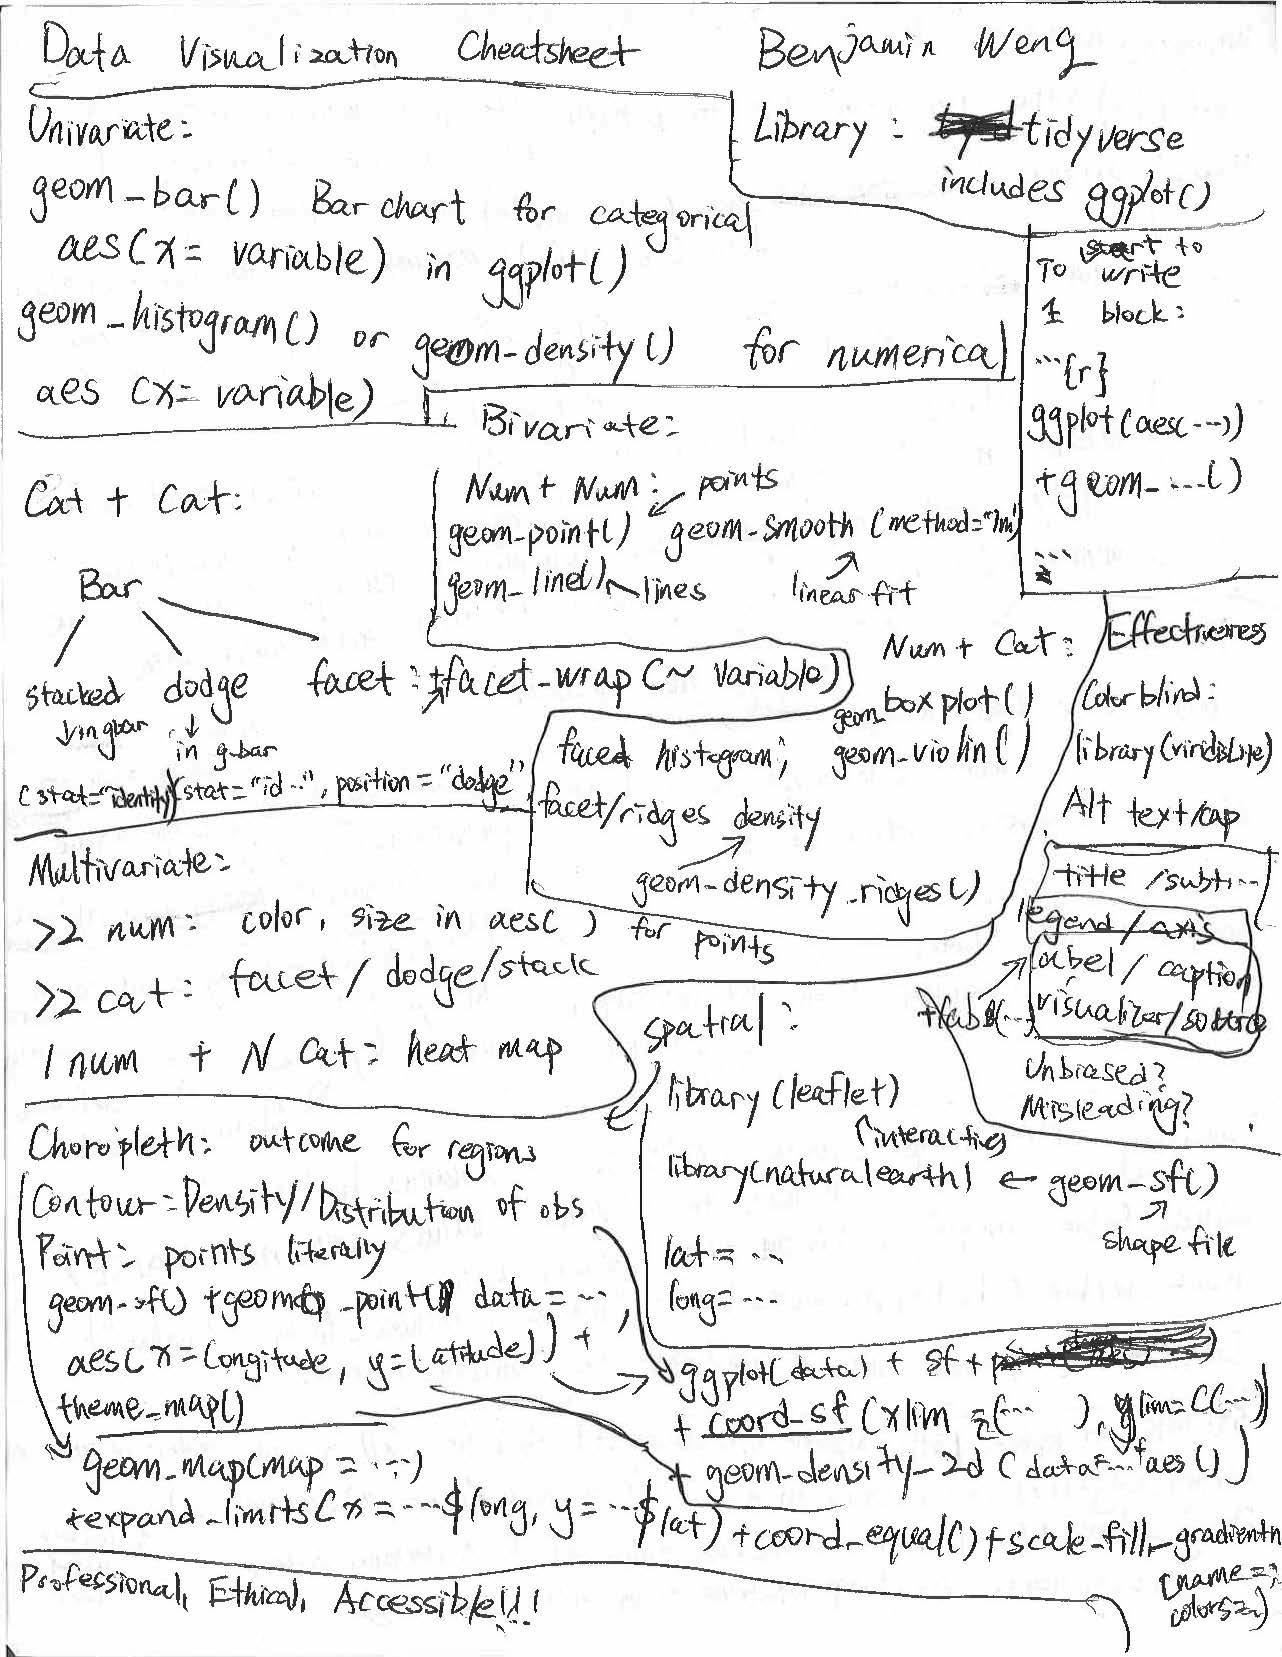 Data Visualization Cheatsheet
Benjamin Weng
Library: tidyverse
includes ggplot()
Univariate:
geom_bar() Bar chart for categorical
aes(x= variable) in ggplot()
geom_histogram() or geom_density() for numerical
aes (x= variable)
To start to
write
1 block:
```{r}
ggplot(aes(...))
+geom_...()
```
Bivariate:
Num + Num: points
geom_point() geom_smooth (method="lm")
geom_line() lines
linear fit
Cat + Cat:
Bar
stacked dodge facet: +facet_wrap (~ variable)
in gbar
in g-bar
(stat="identity") (stat="id...", position="dodge")
Num + Cat:
geom_boxplot()
geom_violin()
faced histogram;
facet/ridges density
geom_density_ridges()
Effectiveness
Colorblind:
library(viridisLite)
Alt text/cap
title /subt...
legend / axis
label / caption
visualizer/source
+labs(...)
Unbiased?
Misleading?
Multivariate:
>2 num: color, size in aes( ) for points
>2 cat: facet / dodge/stack
1 num + N Cat: heat map
spatial:
library (leaflet)
interactive
library(naturalearth) ← geom_sf()
shape file
lat= ...
long= ...
Choropleth: outcome for regions
Contour: Density/Distribution of obs
Point: points literally
geom_sf() +geom_point( data= ...,
aes(x=Longitude, y=Latitude)) +
theme_map()
ggplot(data) + sf +
+ coord_sf (xlim =(... ), ylim=C(...)
+ geom_density_2d (data=... aes())
geom_map(map = ...)
+expand_limits(x=...$long, y=...$lat) +coord_equal() +scale_fill_gradientn
(name=,
colors=)
Professional, Ethical, Accessible!!!